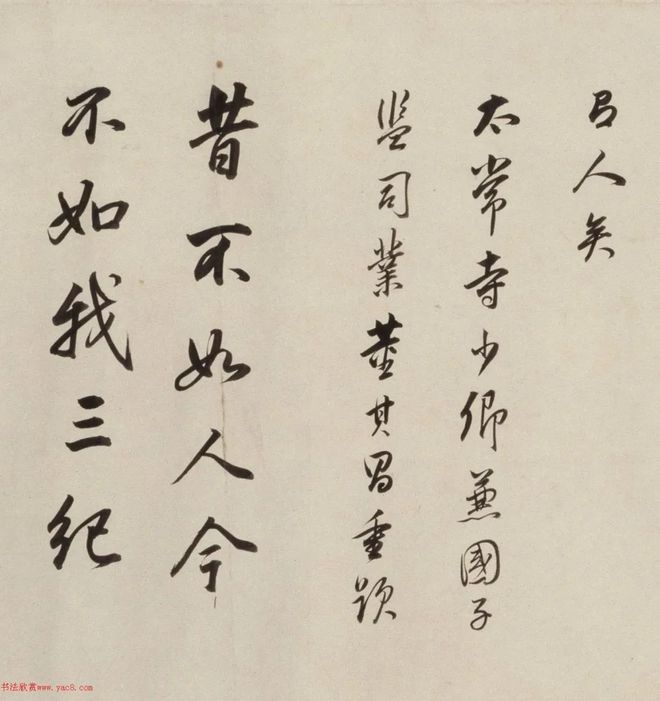 人矣
太常寺少卿兼國子
監司業董其昌重題
昔不如人今
不如我三紀
书法欣赏www.yac8.com